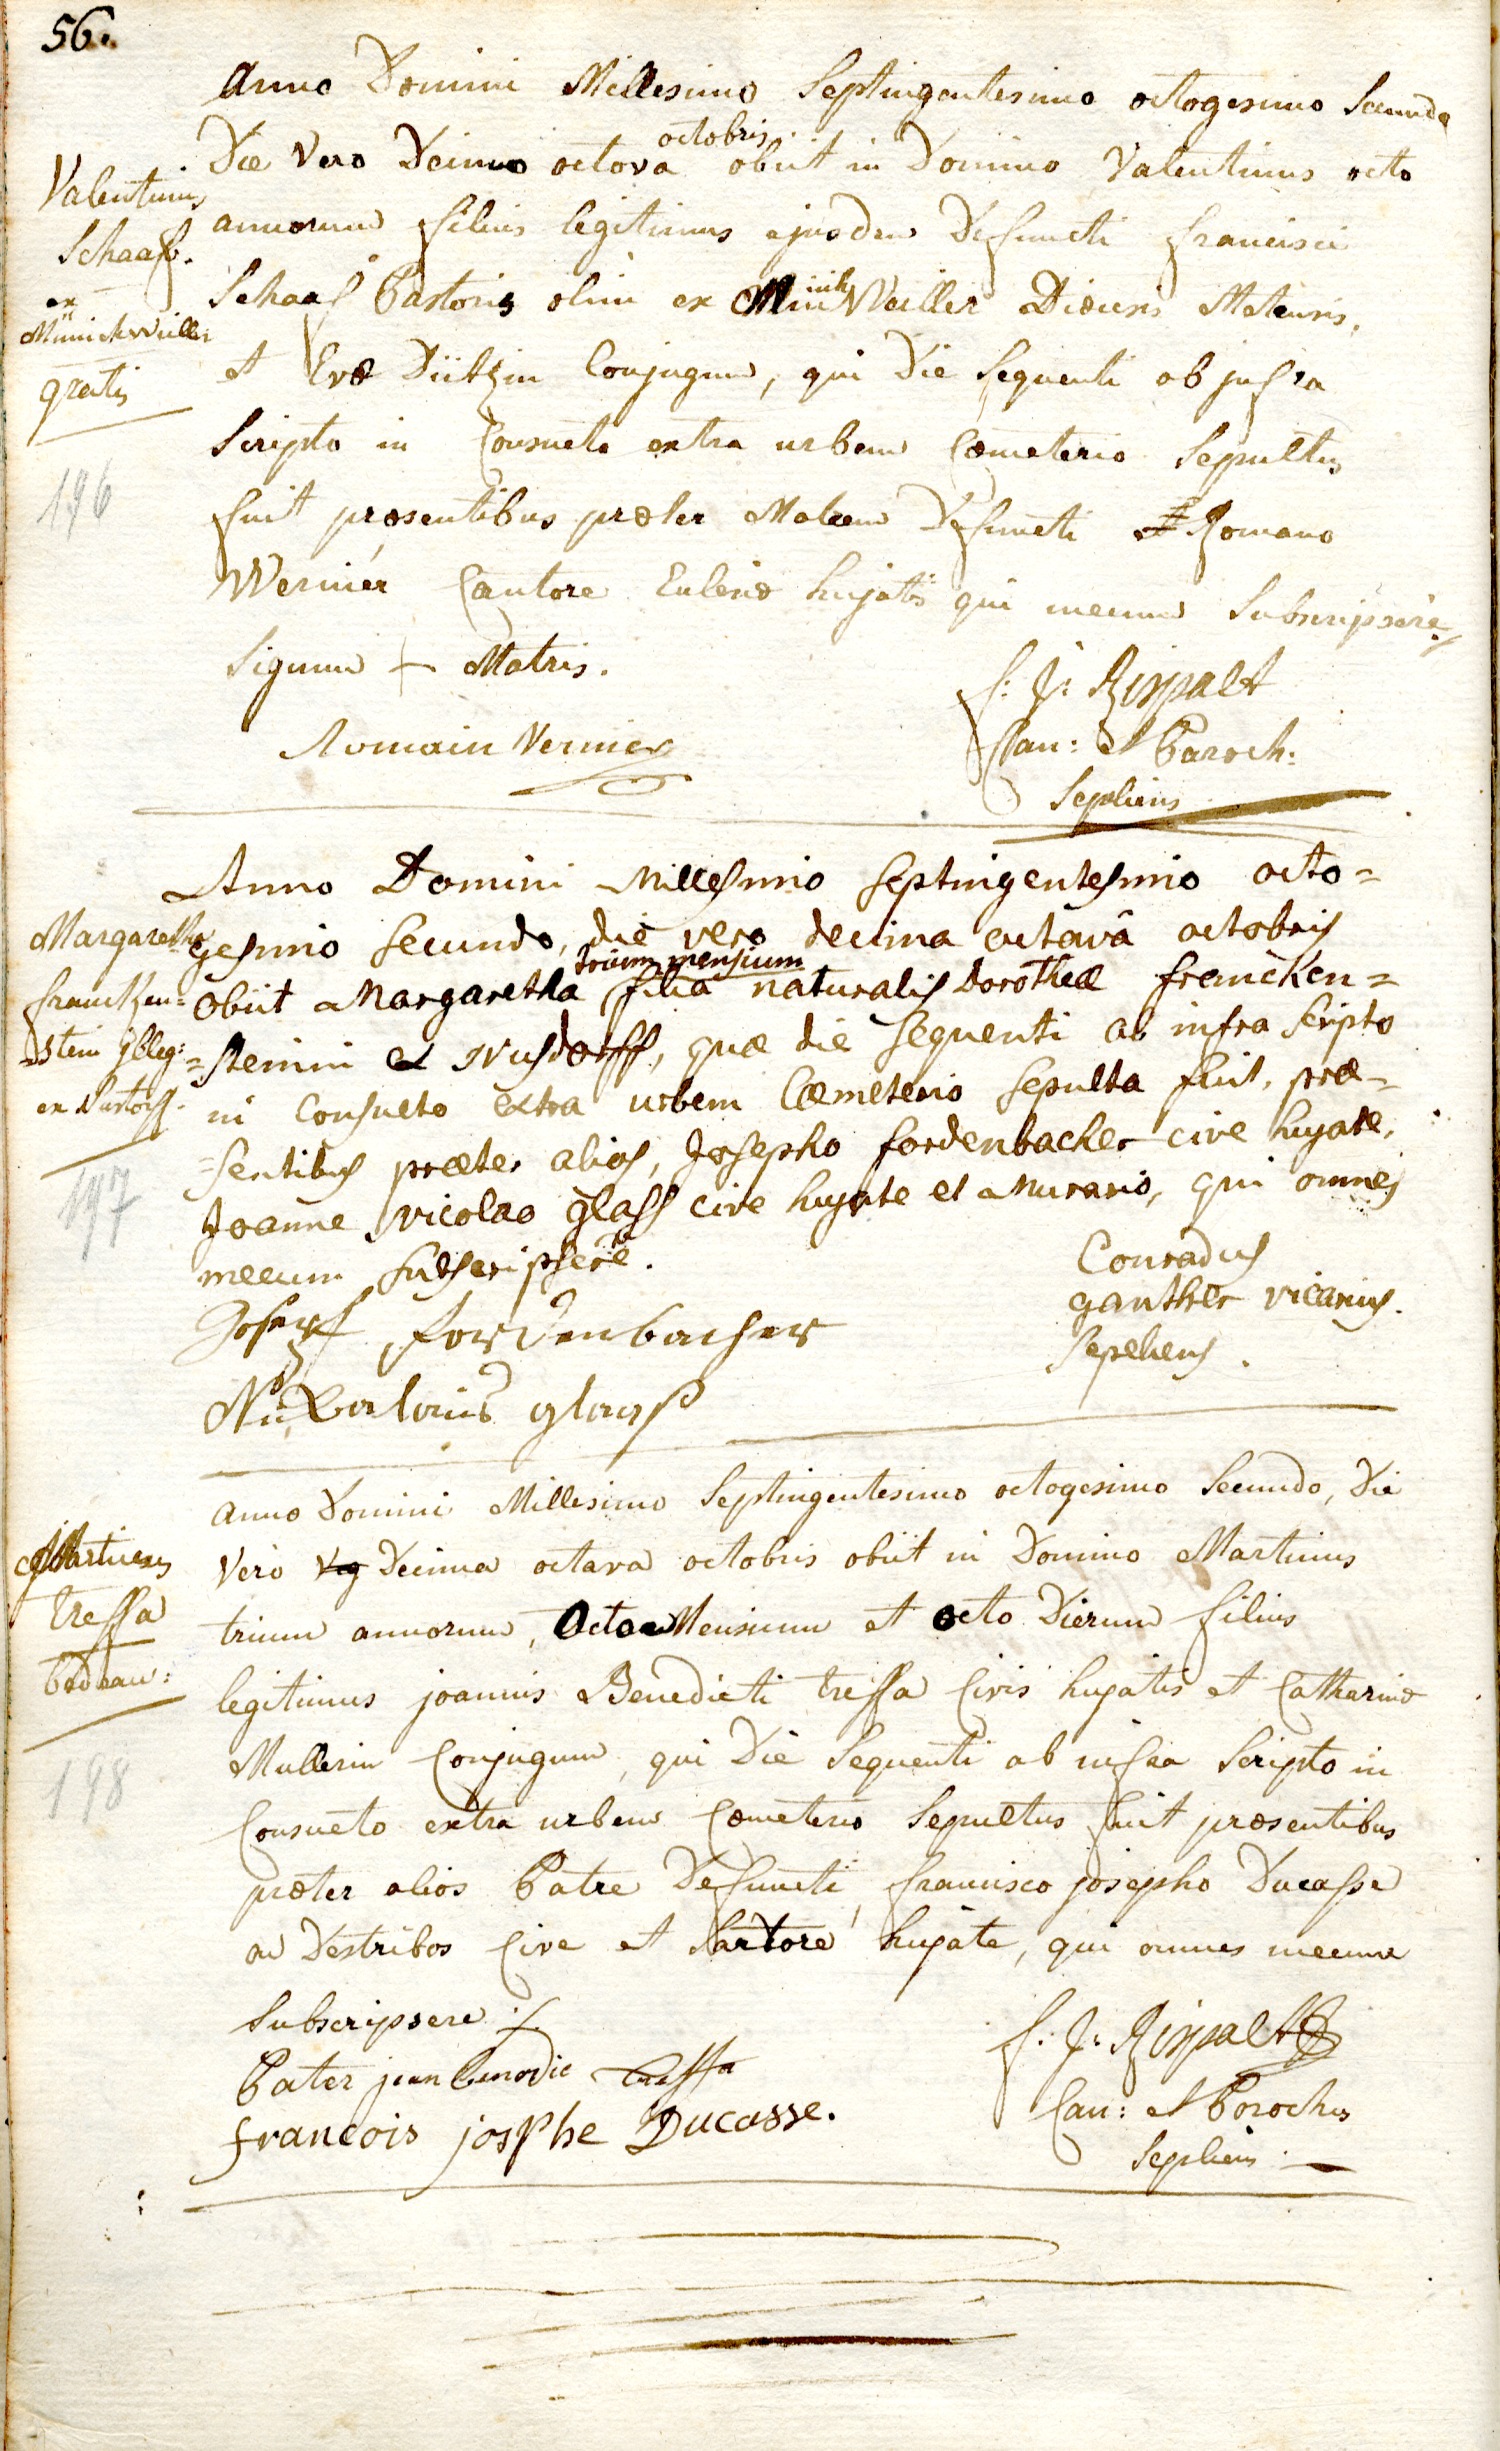 56.
Anno Domini Millesimo Septingentesimo octogesimo Secundo
Die Vero Decima octava octobris obiit in Domino Valentinus octo
Valentinus
Schaaf.
ex
Münichwiller
gratis
annorum filius legitimus ejusdem Defuncti francisci
Schaaf Pastoris olim ex Münichweiller Diœcesis Metensis,
et Evæ Düitzin Conjugum, qui Die Sequenti ab infra
Scripto in Consueto extra urbem Cœmeterio Sepultus
196
fuit præsentibus præter Matrem Defuncti Romano
Wernier Cantore Ecclesiæ hujatis qui mecum Subscripsere
Signum + Matris.
F: J: Rispalt
Romain Vernier
Can: et Paroch:
Sepliens
Anno Domini Millesimo Septingentesimo octo=
Margaretha
francken=
=stein illeg:
ex Nusdorff.
gesimo Secundo, die vero decima octava octobris
obiit Margaretha trium mensium filia naturalis Dorotheæ francken=
=steinin ex Nusdorff, quæ die sequenti ab infra scripto
in Consueto extra urbem Cæmeterio sepulta fuit, præ=
=sentibus præter alios, Josepho fordenbacher cive hujate,
197
Joanne Nicolao glass cive hujate et Murario, qui omnes
mecum subscripsere.
Conradus
ganther vicarius.
Sepeliens.
Josepf fordenbacher
Nickolaus glass
Anno Domini Millesimo Septingentesimo octogesimo Secundo, Die
Martinus
Treffa
Vero Vig Decima octava octobris obiit in Domino Martinus
trium annorum, Octo Mensium et octo Dierum filius
legitimus joannis Benedicti treffa Civis hujatis et Catharinæ
Mullerin Conjugum, qui Die Sequenti ab infra Scripto in
198
Consueto extra urbem Cœmeterio Sepultus fuit præsentibus
præter alios Patre Defuncti, francisco josepho Ducasse
ad Destribos Cive et Sartore hujate, qui omnes mecum
Subscripsere
F: J: Rispalt
Pater jean benodic treffa
Can: et Parochus
francois josPhe Ducasse.
Sepliens